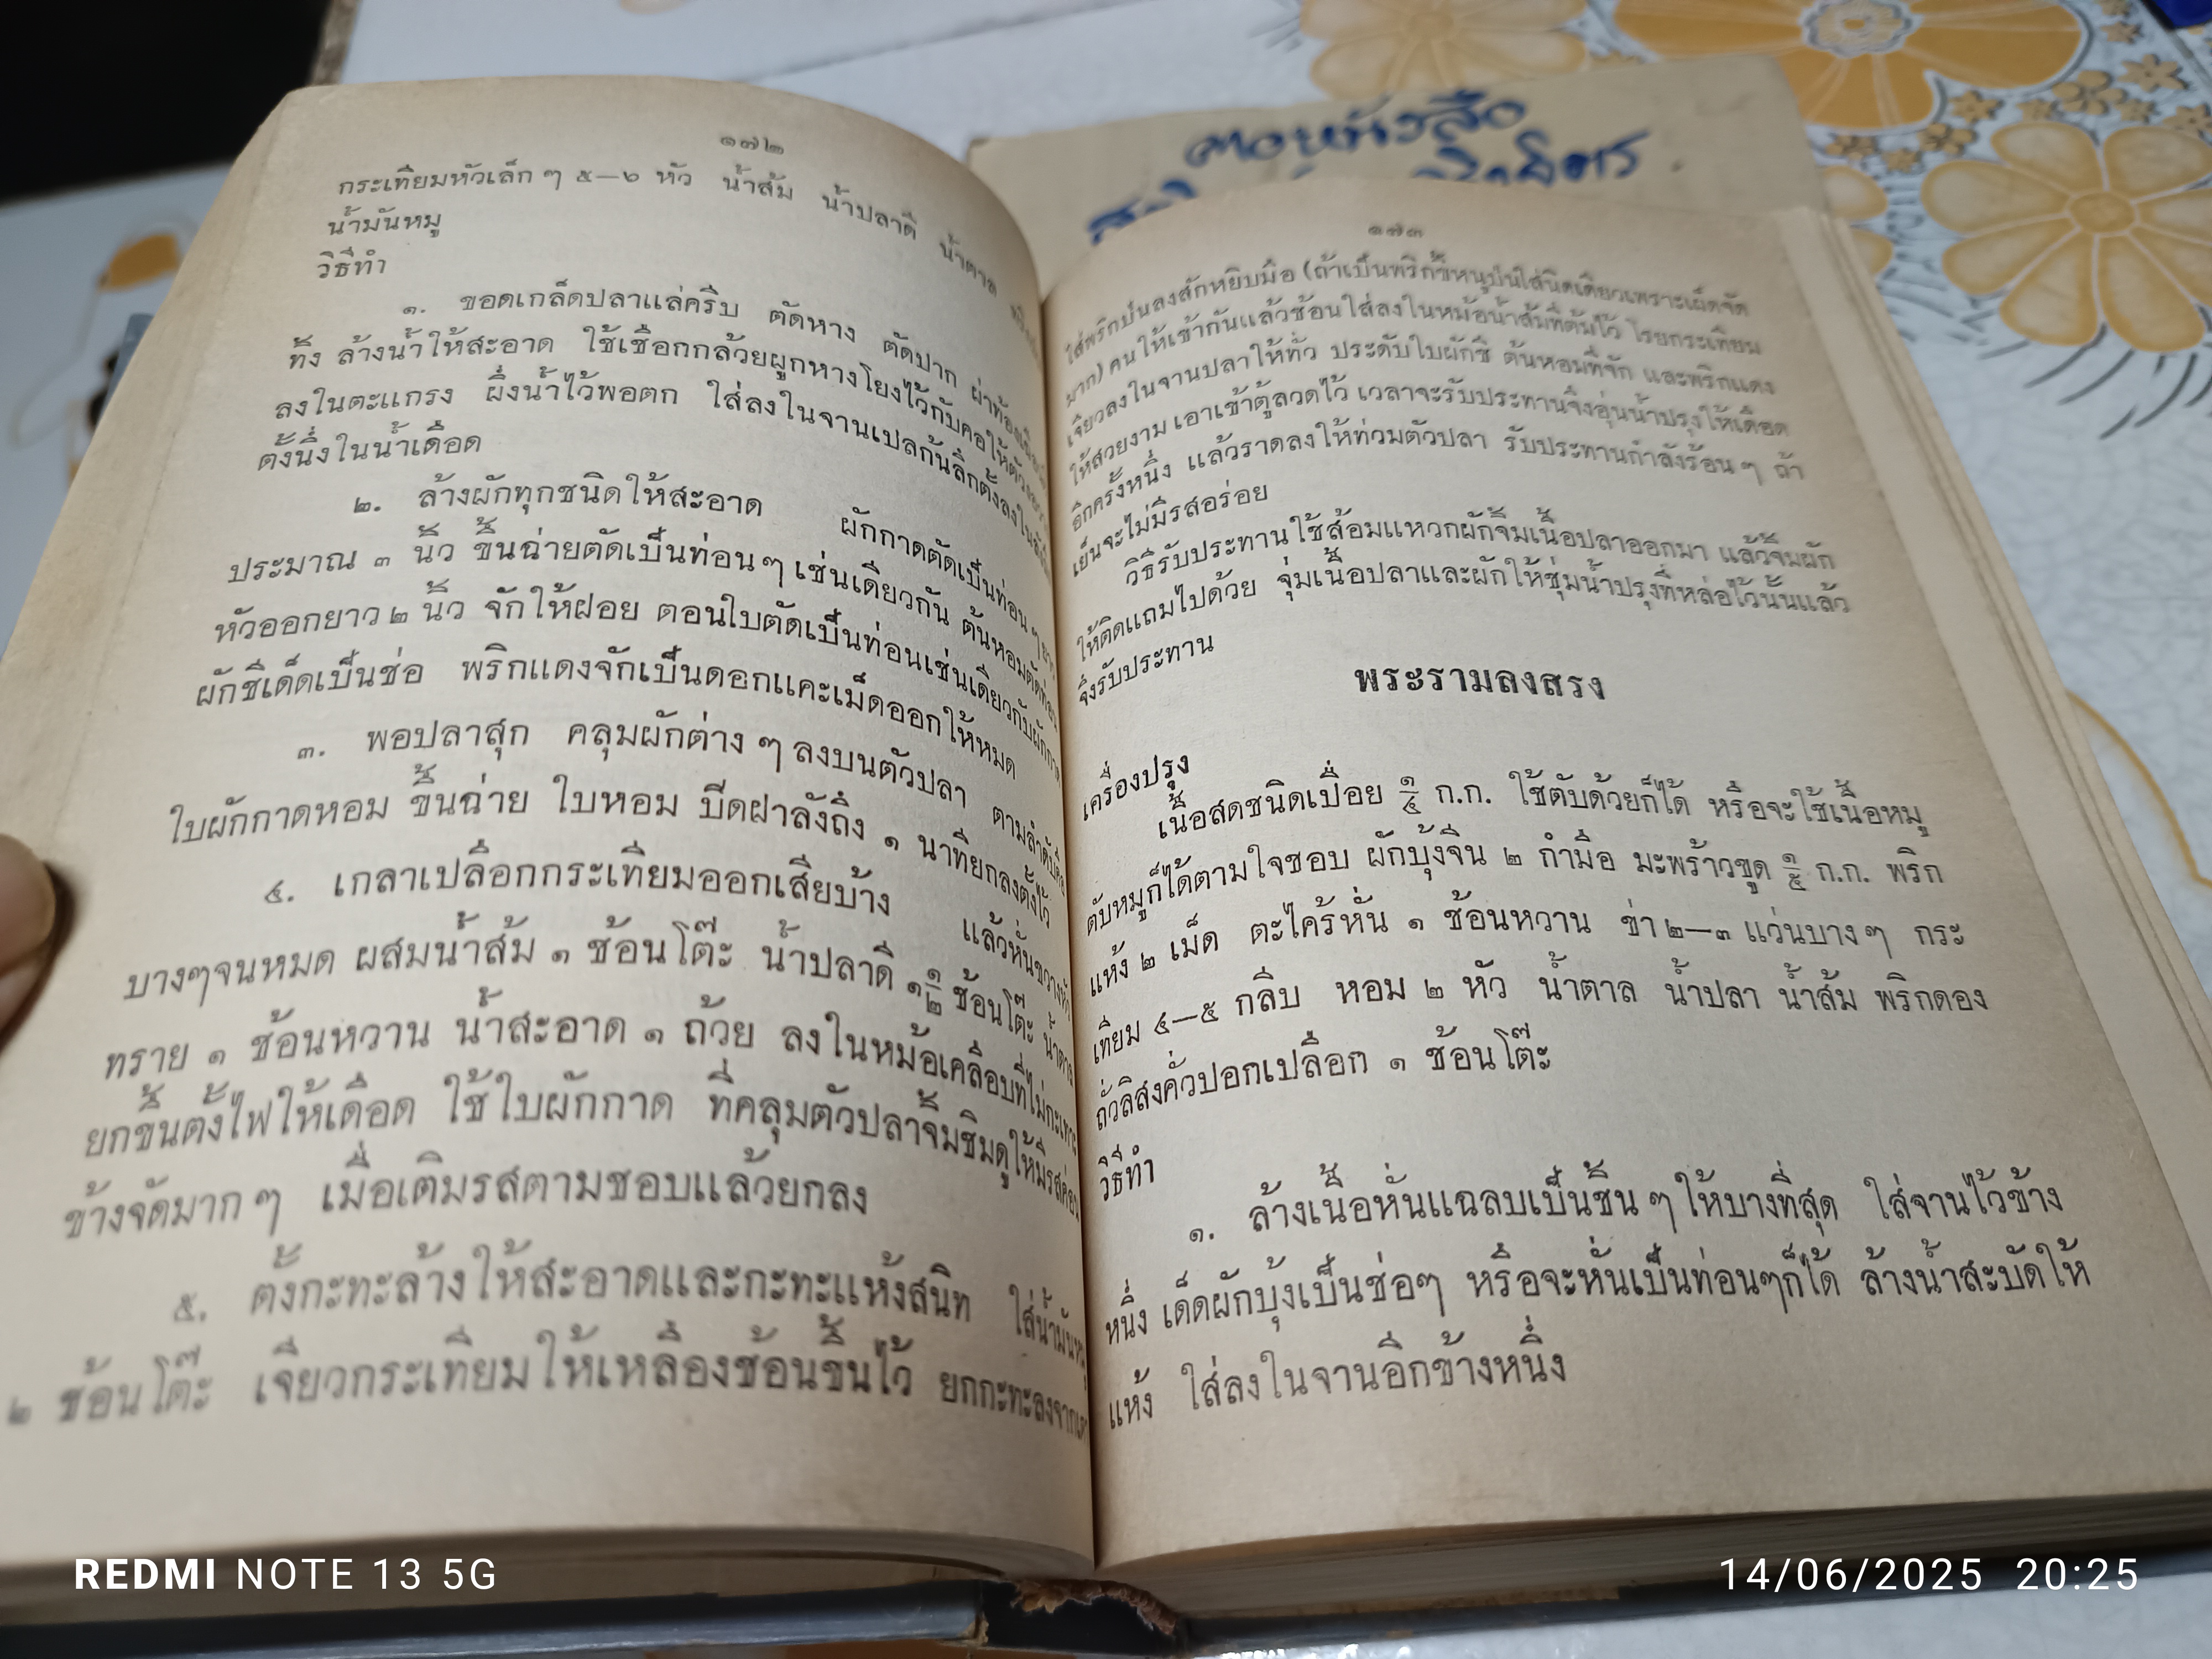 ๑๗๒
กระเทียมหัวเล็ก ๆ ๕—๖ หัว น้ำส้ม น้ำปลาดี น้ำตาล
น้ำมันหมู
วิธีทำ
๑. ขอดเกล็ดปลาแล่ครีบ ตัดหาง ตัดปาก ผ่าท้อง
ทิ้ง ล้างน้ำให้สะอาด ใช้เชือกกล้วยผูกหางโยงไว้กับคอให้ตัว
ลงในตะแกรง ผึ่งน้ำไว้พอตก ใส่ลงในจานเปลก้นลึกตั้งลงใน
ตั้งนึ่งในน้ำเดือด
๒. ล้างผักทุกชนิดให้สะอาด ผักกาดตัดเป็นท่อน ๆ ยาว
ประมาณ ๓ นิ้ว ขึ้นฉ่ายตัดเป็นท่อน ๆ เช่นเดียวกัน ต้นหอมตัดท่อน
หัวออกยาว ๒ นิ้ว จักให้ฝอย ตอนใบตัดเป็นท่อนเช่นเดียวกับผักกาด
ผักชีเด็ดเป็นช่อ พริกแดงจักเป็นดอกแคะเม็ดออกให้หมด
๓. พอปลาสุก คลุมผักต่าง ๆ ลงบนตัวปลา ตามลำดับคือ
ใบผักกาดหอม ขึ้นฉ่าย ใบหอม ปิดฝาลังถึง ๑ นาทียกลงตั้งไว้
๔. เกลาเปลือกกระเทียมออกเสียบ้าง แล้วหั่นขวางหัว
บางๆจนหมด ผสมน้ำส้ม ๑ ช้อนโต๊ะ น้ำปลาดี ๑ ๑/๒ ช้อนโต๊ะ น้ำตาล
ทราย ๑ ช้อนหวาน น้ำสะอาด ๑ ถ้วย ลงในหม้อเคลือบที่ไม่กะเทาะ
ยกขึ้นตั้งไฟให้เดือด ใช้ใบผักกาด ที่คลุมตัวปลาจิ้มชิมดูให้มีรสค่อน
ข้างจัดมาก ๆ เมื่อเติมรสตามชอบแล้วยกลง
๕. ตั้งกะทะล้างให้สะอาดและกะทะแห้งสนิท ใส่น้ำมันหมู
๒ ช้อนโต๊ะ เจียวกระเทียมให้เหลืองช้อนขึ้นไว้ ยกกะทะลงจากเตา
ตอหนังสือ
๑๗๓
ใส่พริกป่นลงสักหยิบมือ (ถ้าเป็นพริกขี้หนูป่นใส่นิดเดียวเพราะเผ็ดจัด
มาก) คนให้เข้ากันแล้วช้อนใส่ลงในหม้อน้ำส้มที่ต้มไว้ โรยกระเทียม
เจียวลงในจานปลาให้ทั่ว ประดับใบผักชี ต้นหอมที่จัก และพริกแดง
ให้สวยงาม เอาเข้าตู้ลวดไว้ เวลาจะรับประทานจึงอุ่นน้ำปรุงให้เดือด
อีกครั้งหนึ่ง แล้วราดลงให้ท่วมตัวปลา รับประทานกำลังร้อน ๆ ถ้า
เย็นจะไม่มีรสอร่อย
วิธีรับประทาน ใช้ส้อมแหวกผักจิ้มเนื้อปลาออกมา แล้วจิ้มผัก
ให้ติดแถมไปด้วย จุ่มเนื้อปลาและผักให้ชุ่มน้ำปรุงที่หล่อไว้นั้นแล้ว
จึงรับประทาน
พระรามลงสรง
เครื่องปรุง
เนื้อสดชนิดเปื่อย ๑/๔ ก.ก. ใช้ตับด้วยก็ได้ หรือจะใช้เนื้อหมู
ตับหมูก็ได้ตามใจชอบ ผักบุ้งจีน ๒ กำมือ มะพร้าวขูด ๑/๕ ก.ก. พริก
แห้ง ๒ เม็ด ตะไคร้หั่น ๑ ช้อนหวาน ข่า ๒—๓ แว่นบาง ๆ กระ
เทียม ๔—๕ กลีบ หอม ๒ หัว น้ำตาล น้ำปลา น้ำส้ม พริกดอง
ถั่วลิสงคั่วปอกเปลือก ๑ ช้อนโต๊ะ
วิธีทำ
๑. ล้างเนื้อหั่นแฉลบเป็นชิ้น ๆ ให้บางที่สุด ใส่จานไว้ข้าง
หนึ่ง เด็ดผักบุ้งเป็นช่อๆ หรือจะหั่นเป็นท่อนๆก็ได้ ล้างน้ำสะบัดให้
แห้ง ใส่ลงในจานอีกข้างหนึ่ง
REDMI NOTE 13 5G
14/06/2025 20:25